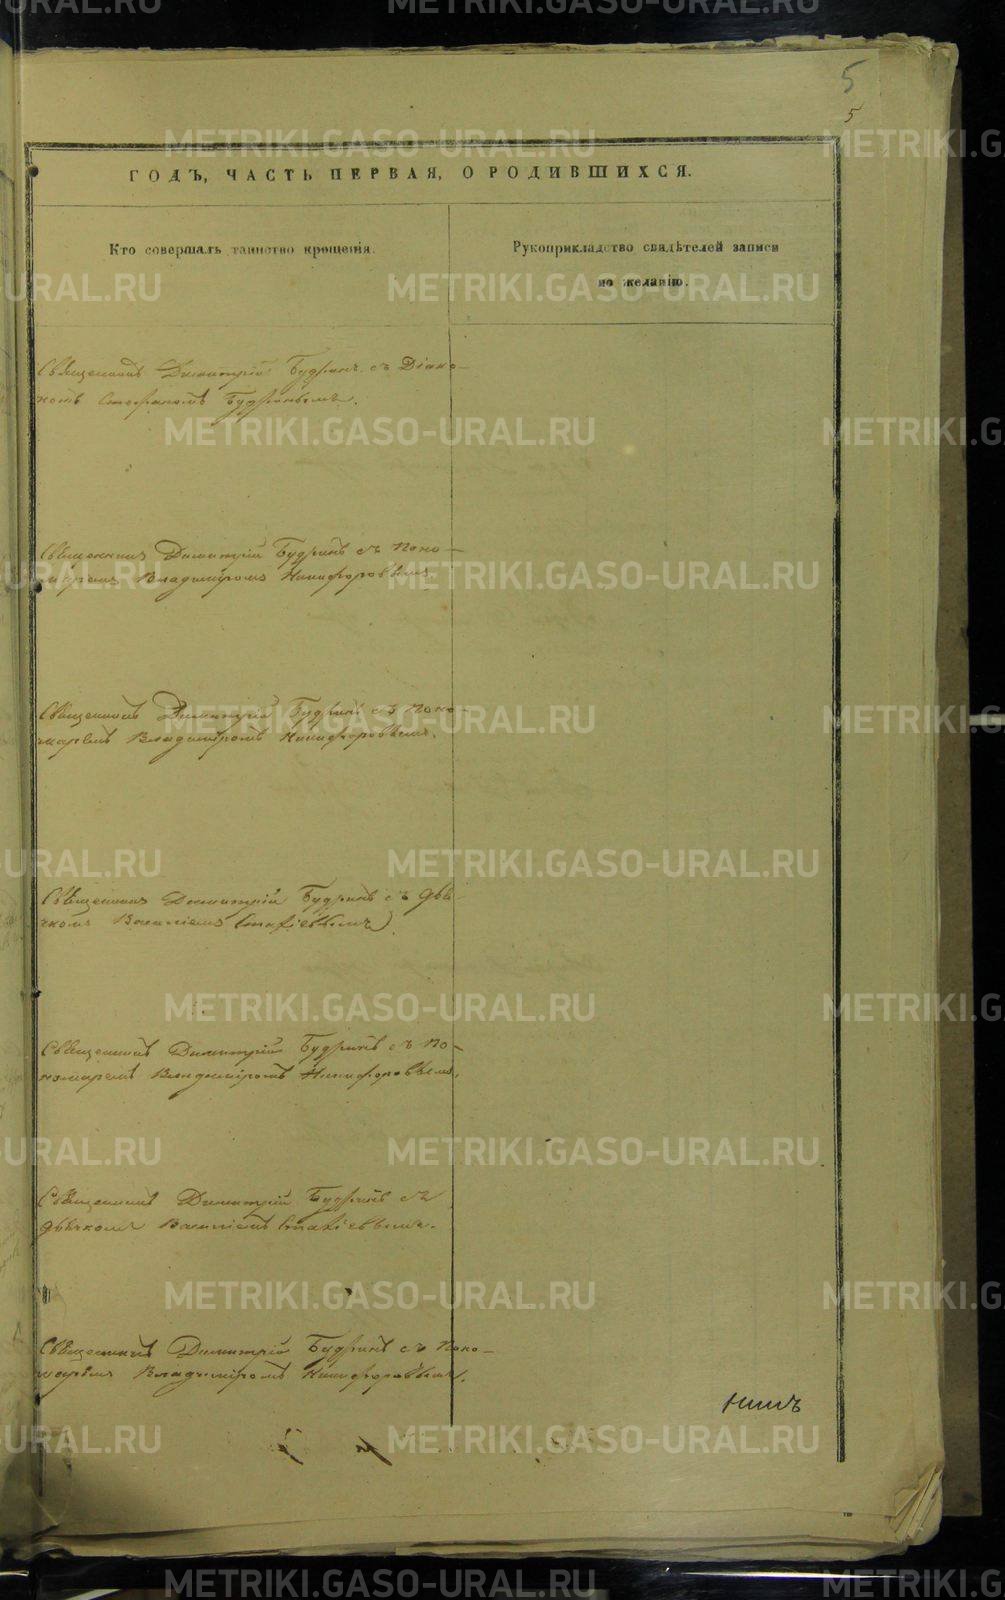 5
5
ГОДЪ, ЧАСТЬ ПЕРВАЯ, О РОДИВШИХСЯ.
Кто совершалъ таинство крещенія.
Рукоприкладство свидѣтелей записи
по желанію.
Священникъ Димитрій Будринъ съ Діако-
номъ Стефаномъ Будринымъ.
Священникъ Димитрій Будринъ съ Поно-
маремъ Владиміромъ Никифоровымъ.
Священникъ Димитрій Будринъ съ Поно-
маремъ Владиміромъ Никифоровымъ.
Священникъ Димитрій Будринъ съ Дья-
чкомъ Василіемъ
Священникъ Димитрій Будринъ съ По-
номаремъ Владиміромъ Никифоровымъ.
Священникъ Димитрій Будринъ съ
дьячкомъ Василіемъ
Священникъ Димитрій Будринъ съ Поно-
маремъ Владиміромъ Никифоровымъ.
METRIKI.GASO-URAL.RU